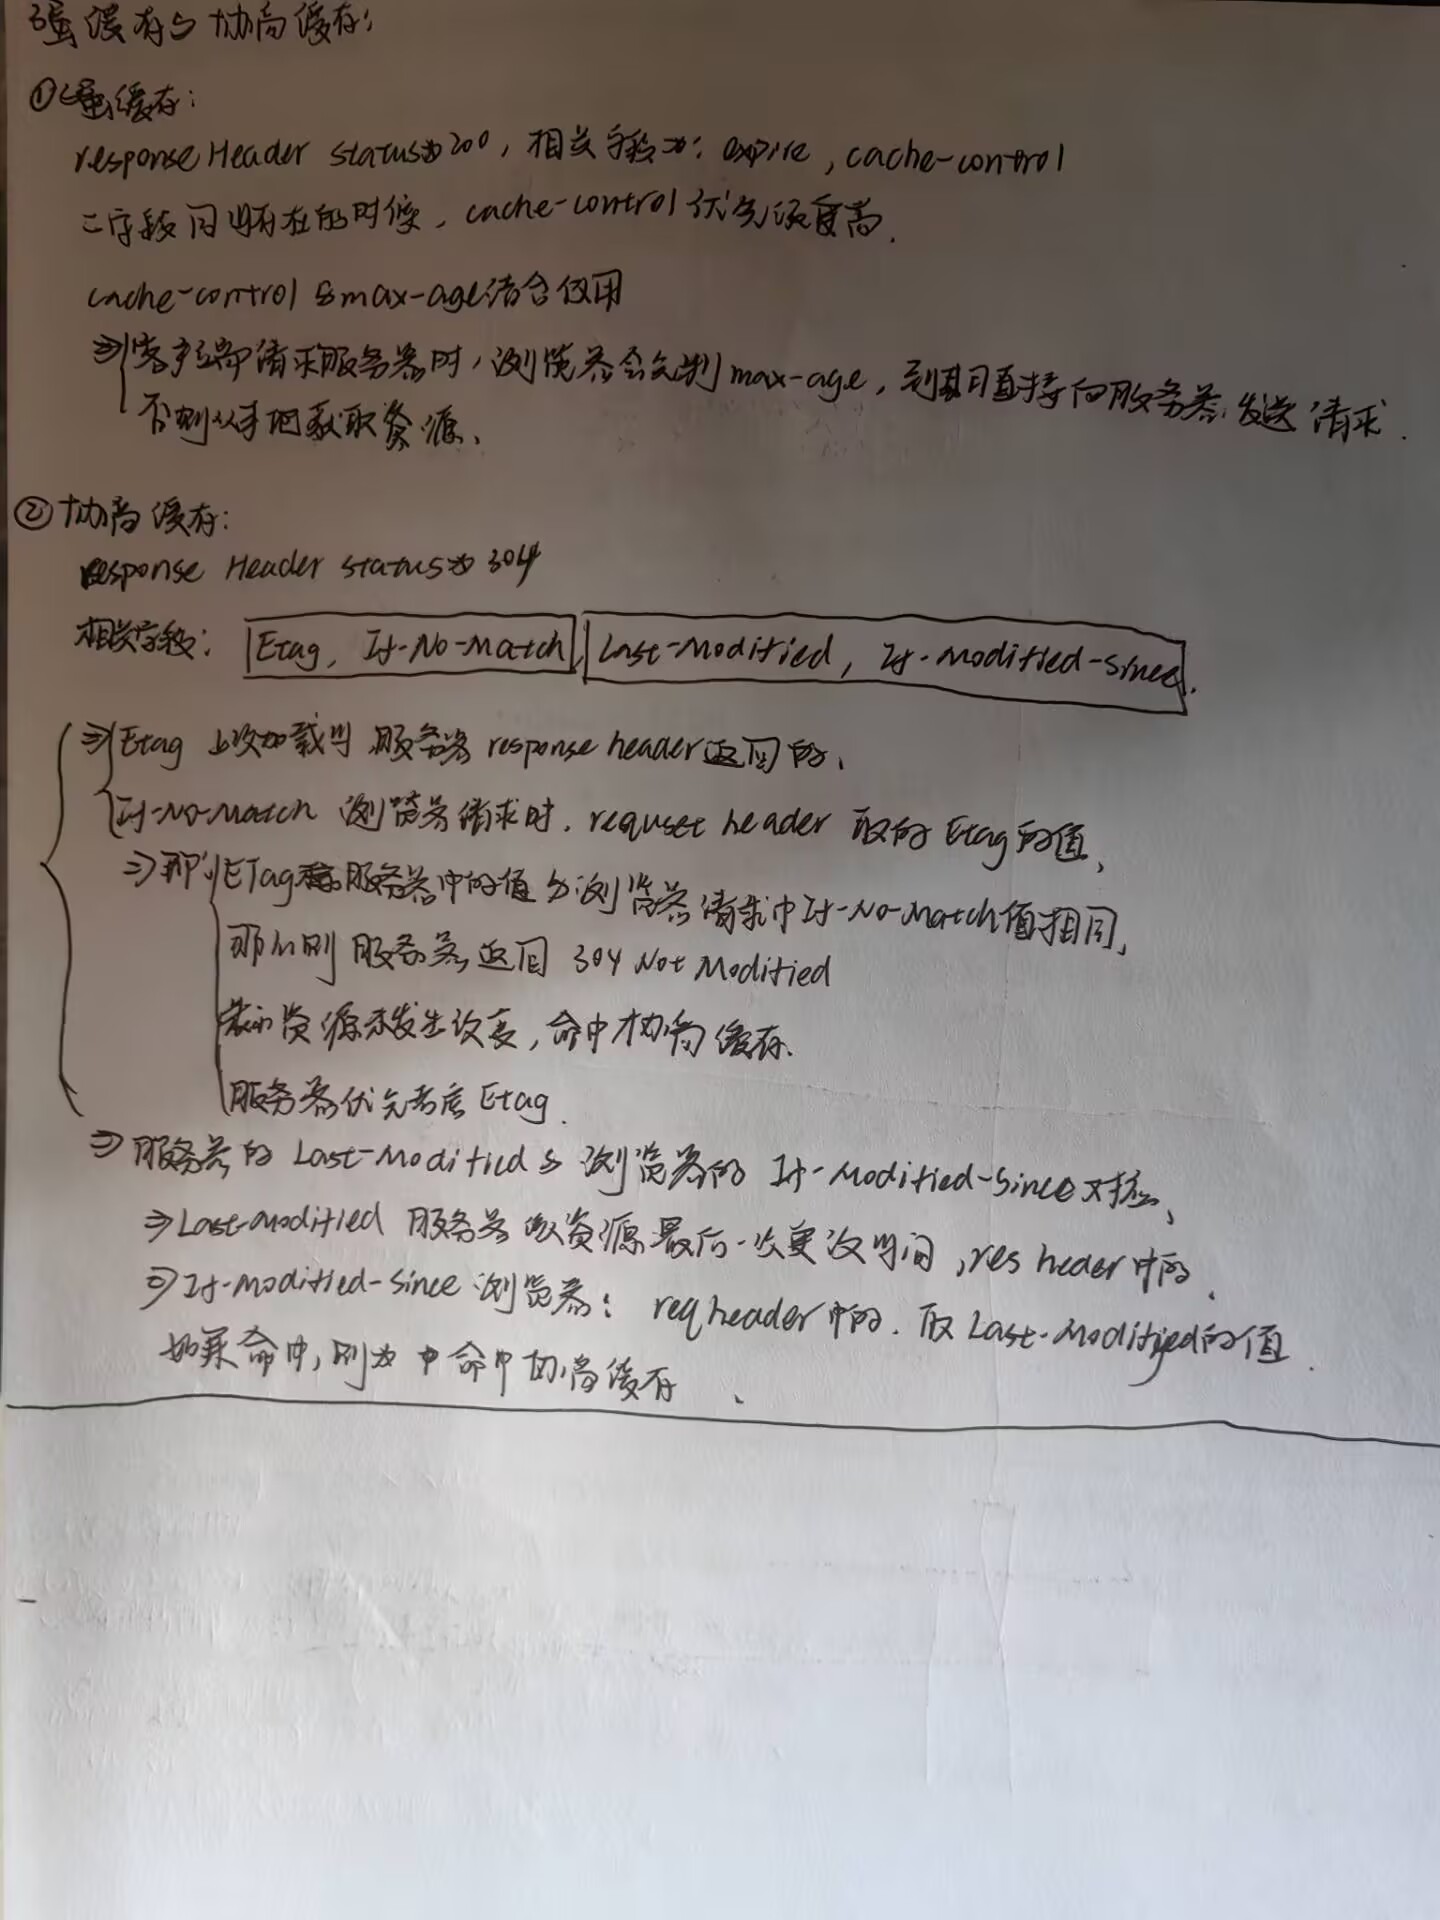 强缓存与协商缓存:
① 强缓存:
response Header status为200, 相关字段为: expire, cache-control
二字段同时存在的时候, cache-control 优先级更高.
cache-control 与max-age结合使用
⇒ 客户端请求服务器时, 浏览器会先判 max-age, 到期直接向服务器发送请求.
否则从本地获取资源.
② 协商缓存:
response Header status为 304
相关字段: Etag, If-No-Match, Last-Modified, If-Modified-Since.
⇒ Etag 上次加载时 服务器 response header返回的,
If-No-Match 浏览器请求时, requset header 取的 Etag的值,
⇒ ETag 服务器中的值与浏览器请求中If-No-Match值相同,
那么则 服务器返回 304 Not Modified
表示资源未发生改变, 命中协商缓存.
服务器优先考虑 Etag.
⇒ 服务器的 Last-Modified 与 浏览器的 If-Modified-Since 对比,
⇒ Last-modified 服务器 资源最后一次更改时间, res heder中的.
⇒ If-Modified-Since 浏览器: req header中的. 取 Last-Modified的值.
如果命中, 则为 命中协商缓存